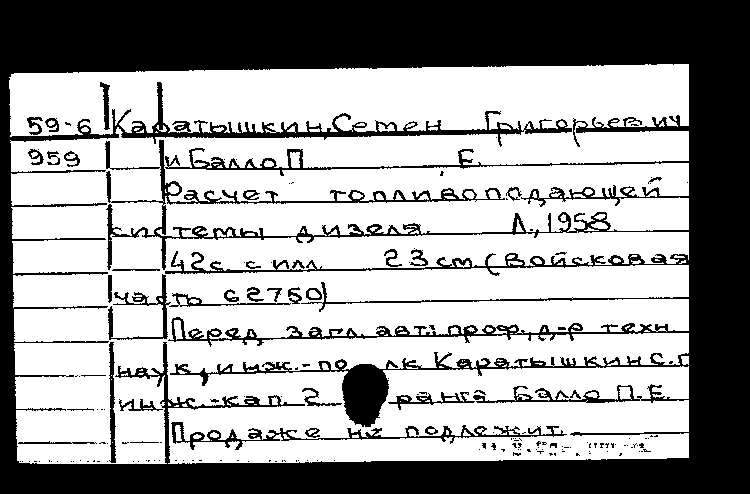 59-6 Каратышкин, Семен Григорьевич
959 и Балло, П. Е.
Расчет топливоподающей
системы дизеля. Л., 1958.
42 с. с илл. 23 см (Войсковая
часть 62750)
Перед загл. авт.: проф., д-р техн.
наук, инж.-полк. Каратышкин С.Г.
инж.-кап. 2 ранга Балло П.Е.
Продаже не подлежит.